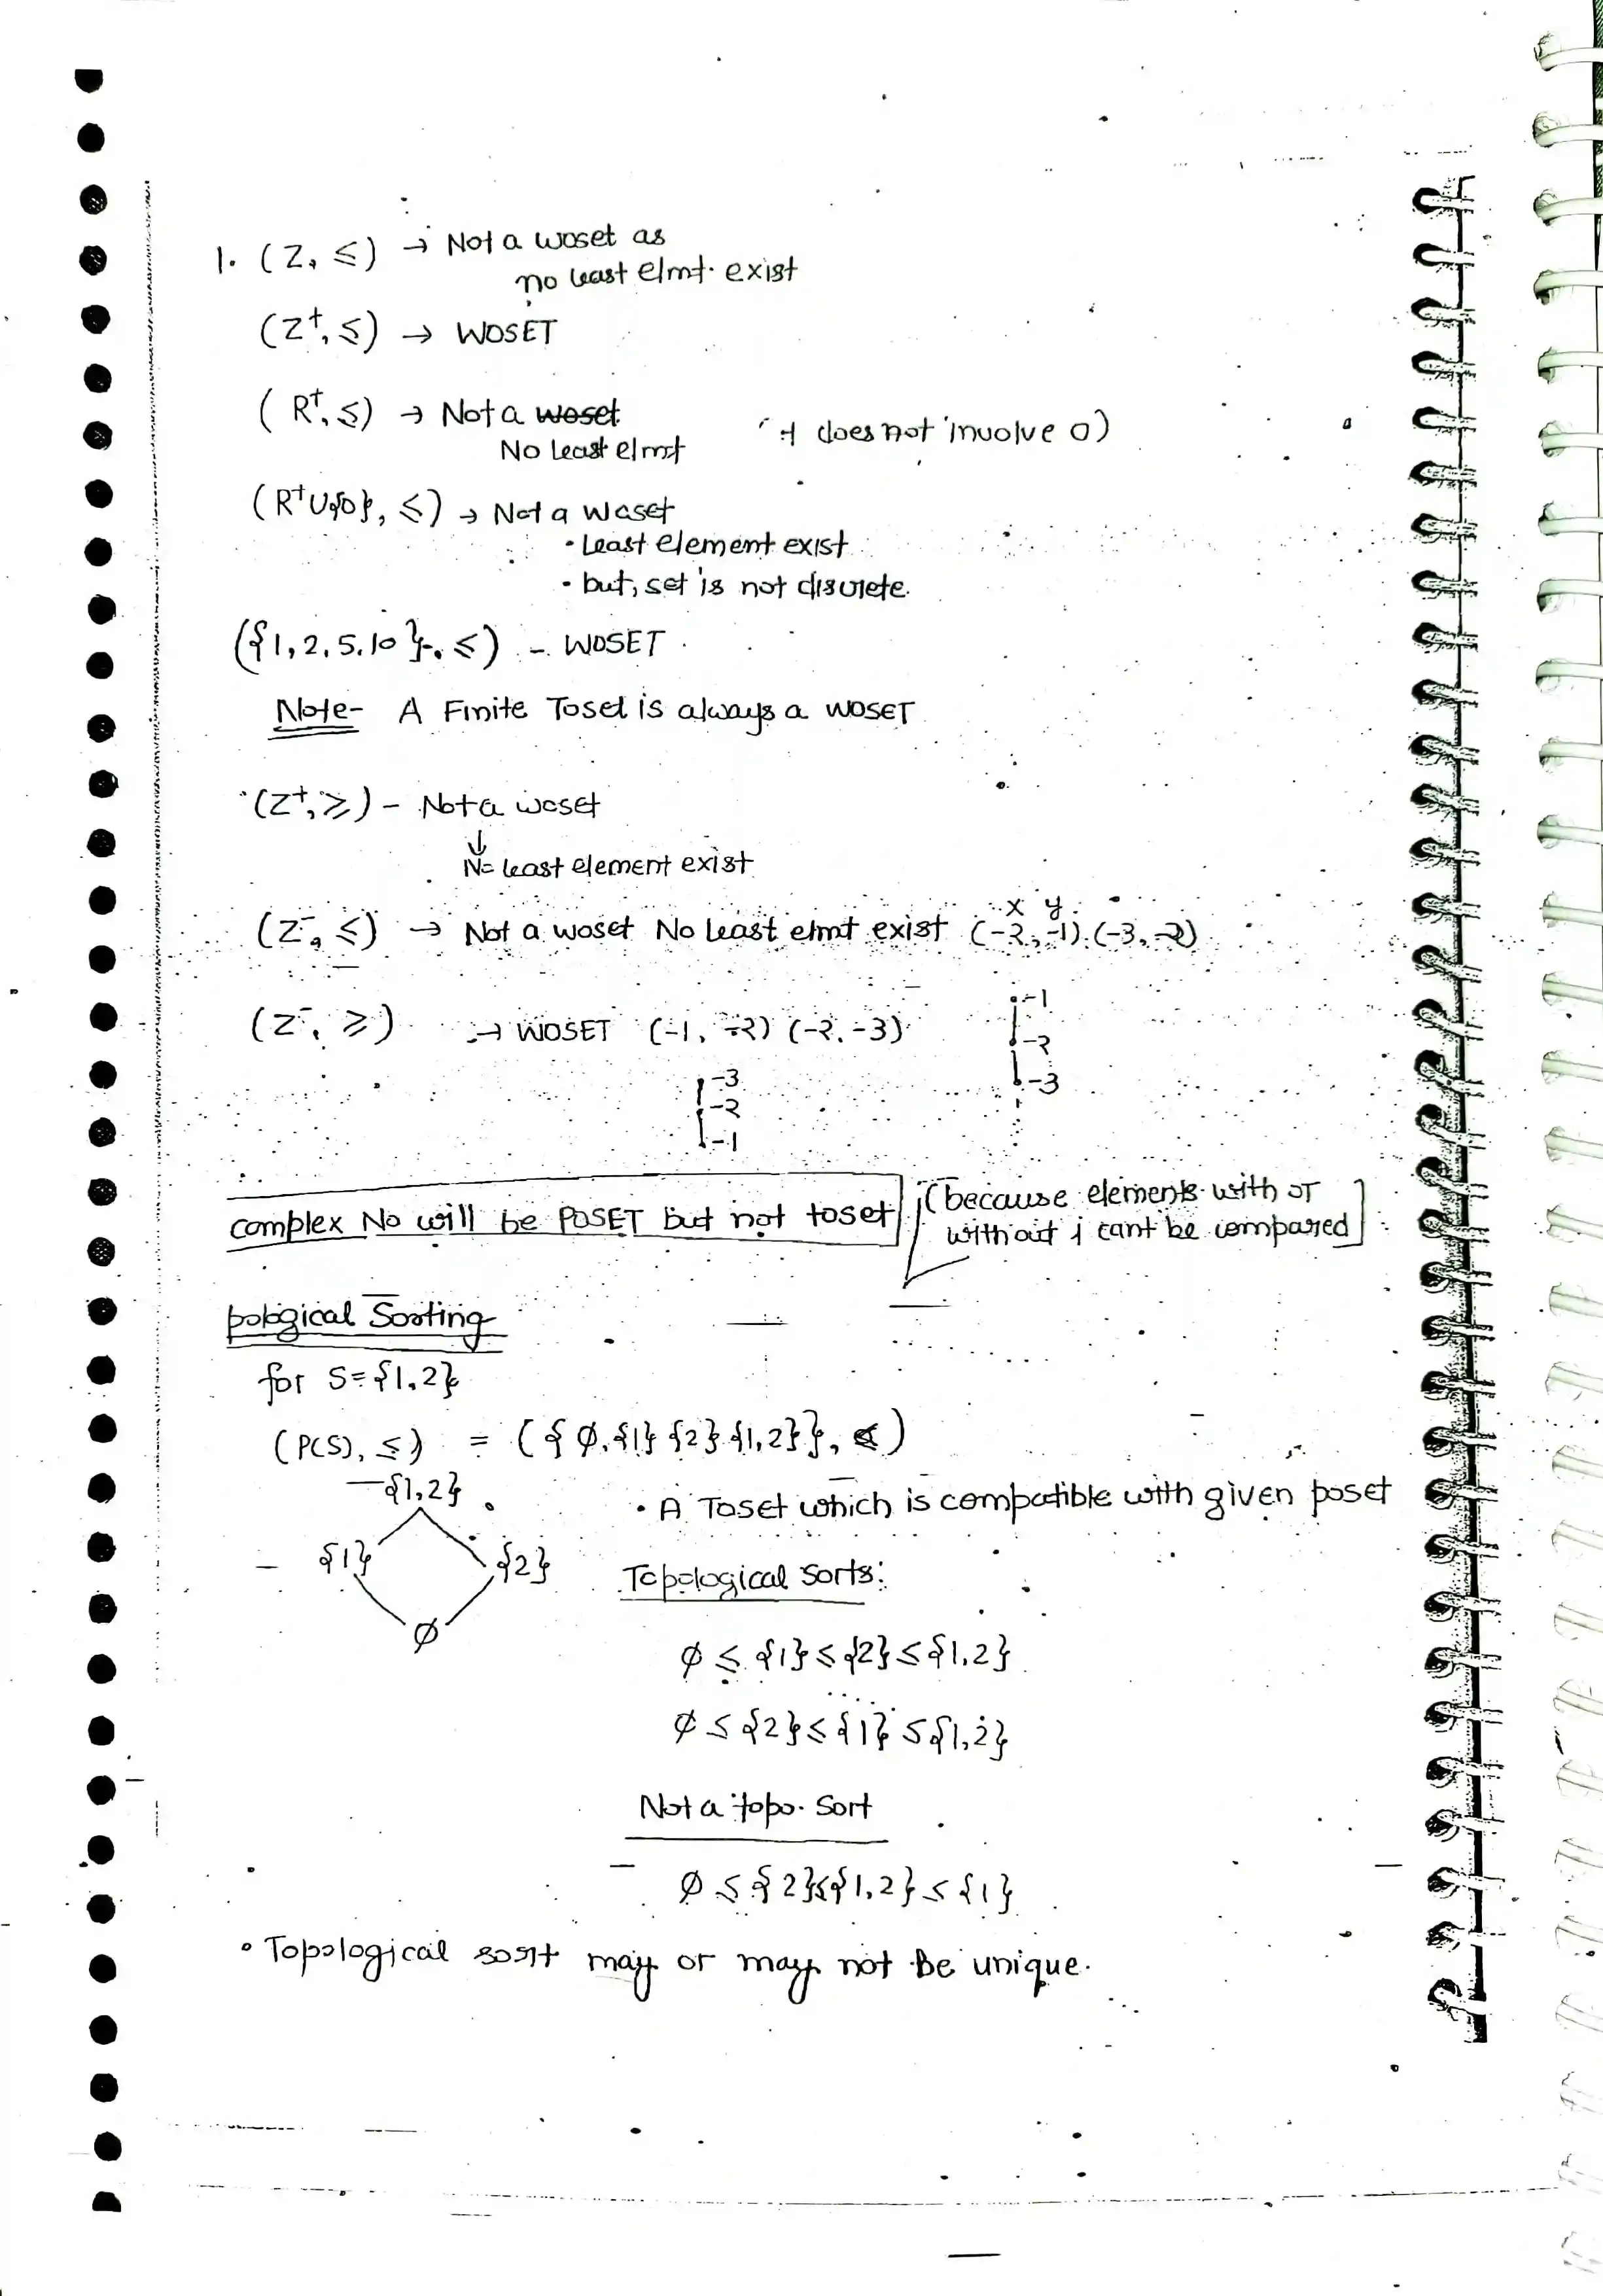 1. (Z, ≤) → Not a woset as
no least elmt. exist
(Z⁺, ≤) → WOSET
(R⁺, ≤) → Not a woset
No Least elmt does not involve 0)
(R⁺U{0}, ≤) → Not a woset
• Least element exist
• but, set is not discrete.
({1,2,5,10}, ≤) - WOSET
Note- A Finite Toset is always a WOSET
(Z⁺, ≥) - Not a woset
↓
No least element exist
x y
(Z⁻, ≤) → Not a woset No least elmt exist (-2, -1) (-3, -2)
(Z⁻, ≥) → WOSET (-1, -2) (-2, -3)
-1
-2
-3
-3
-2
-1
complex No will be POSET but not toset (because elements with or
without i cant be compared
pological Sorting
for S = {1,2}
(P(S), ≤) = ({∅, {1} {2} {1,2}}, ≤)
{1,2}
• A Toset which is compatible with given poset
{1} {2}
Topological Sorts:
∅
∅ ≤ {1} ≤ {2} ≤ {1,2}
∅ ≤ {2} ≤ {1} ≤ {1,2}
Not a topo. Sort
∅ ≤ {2} ≤ {1,2} ≤ {1}
• Topological sort may or may not be unique.